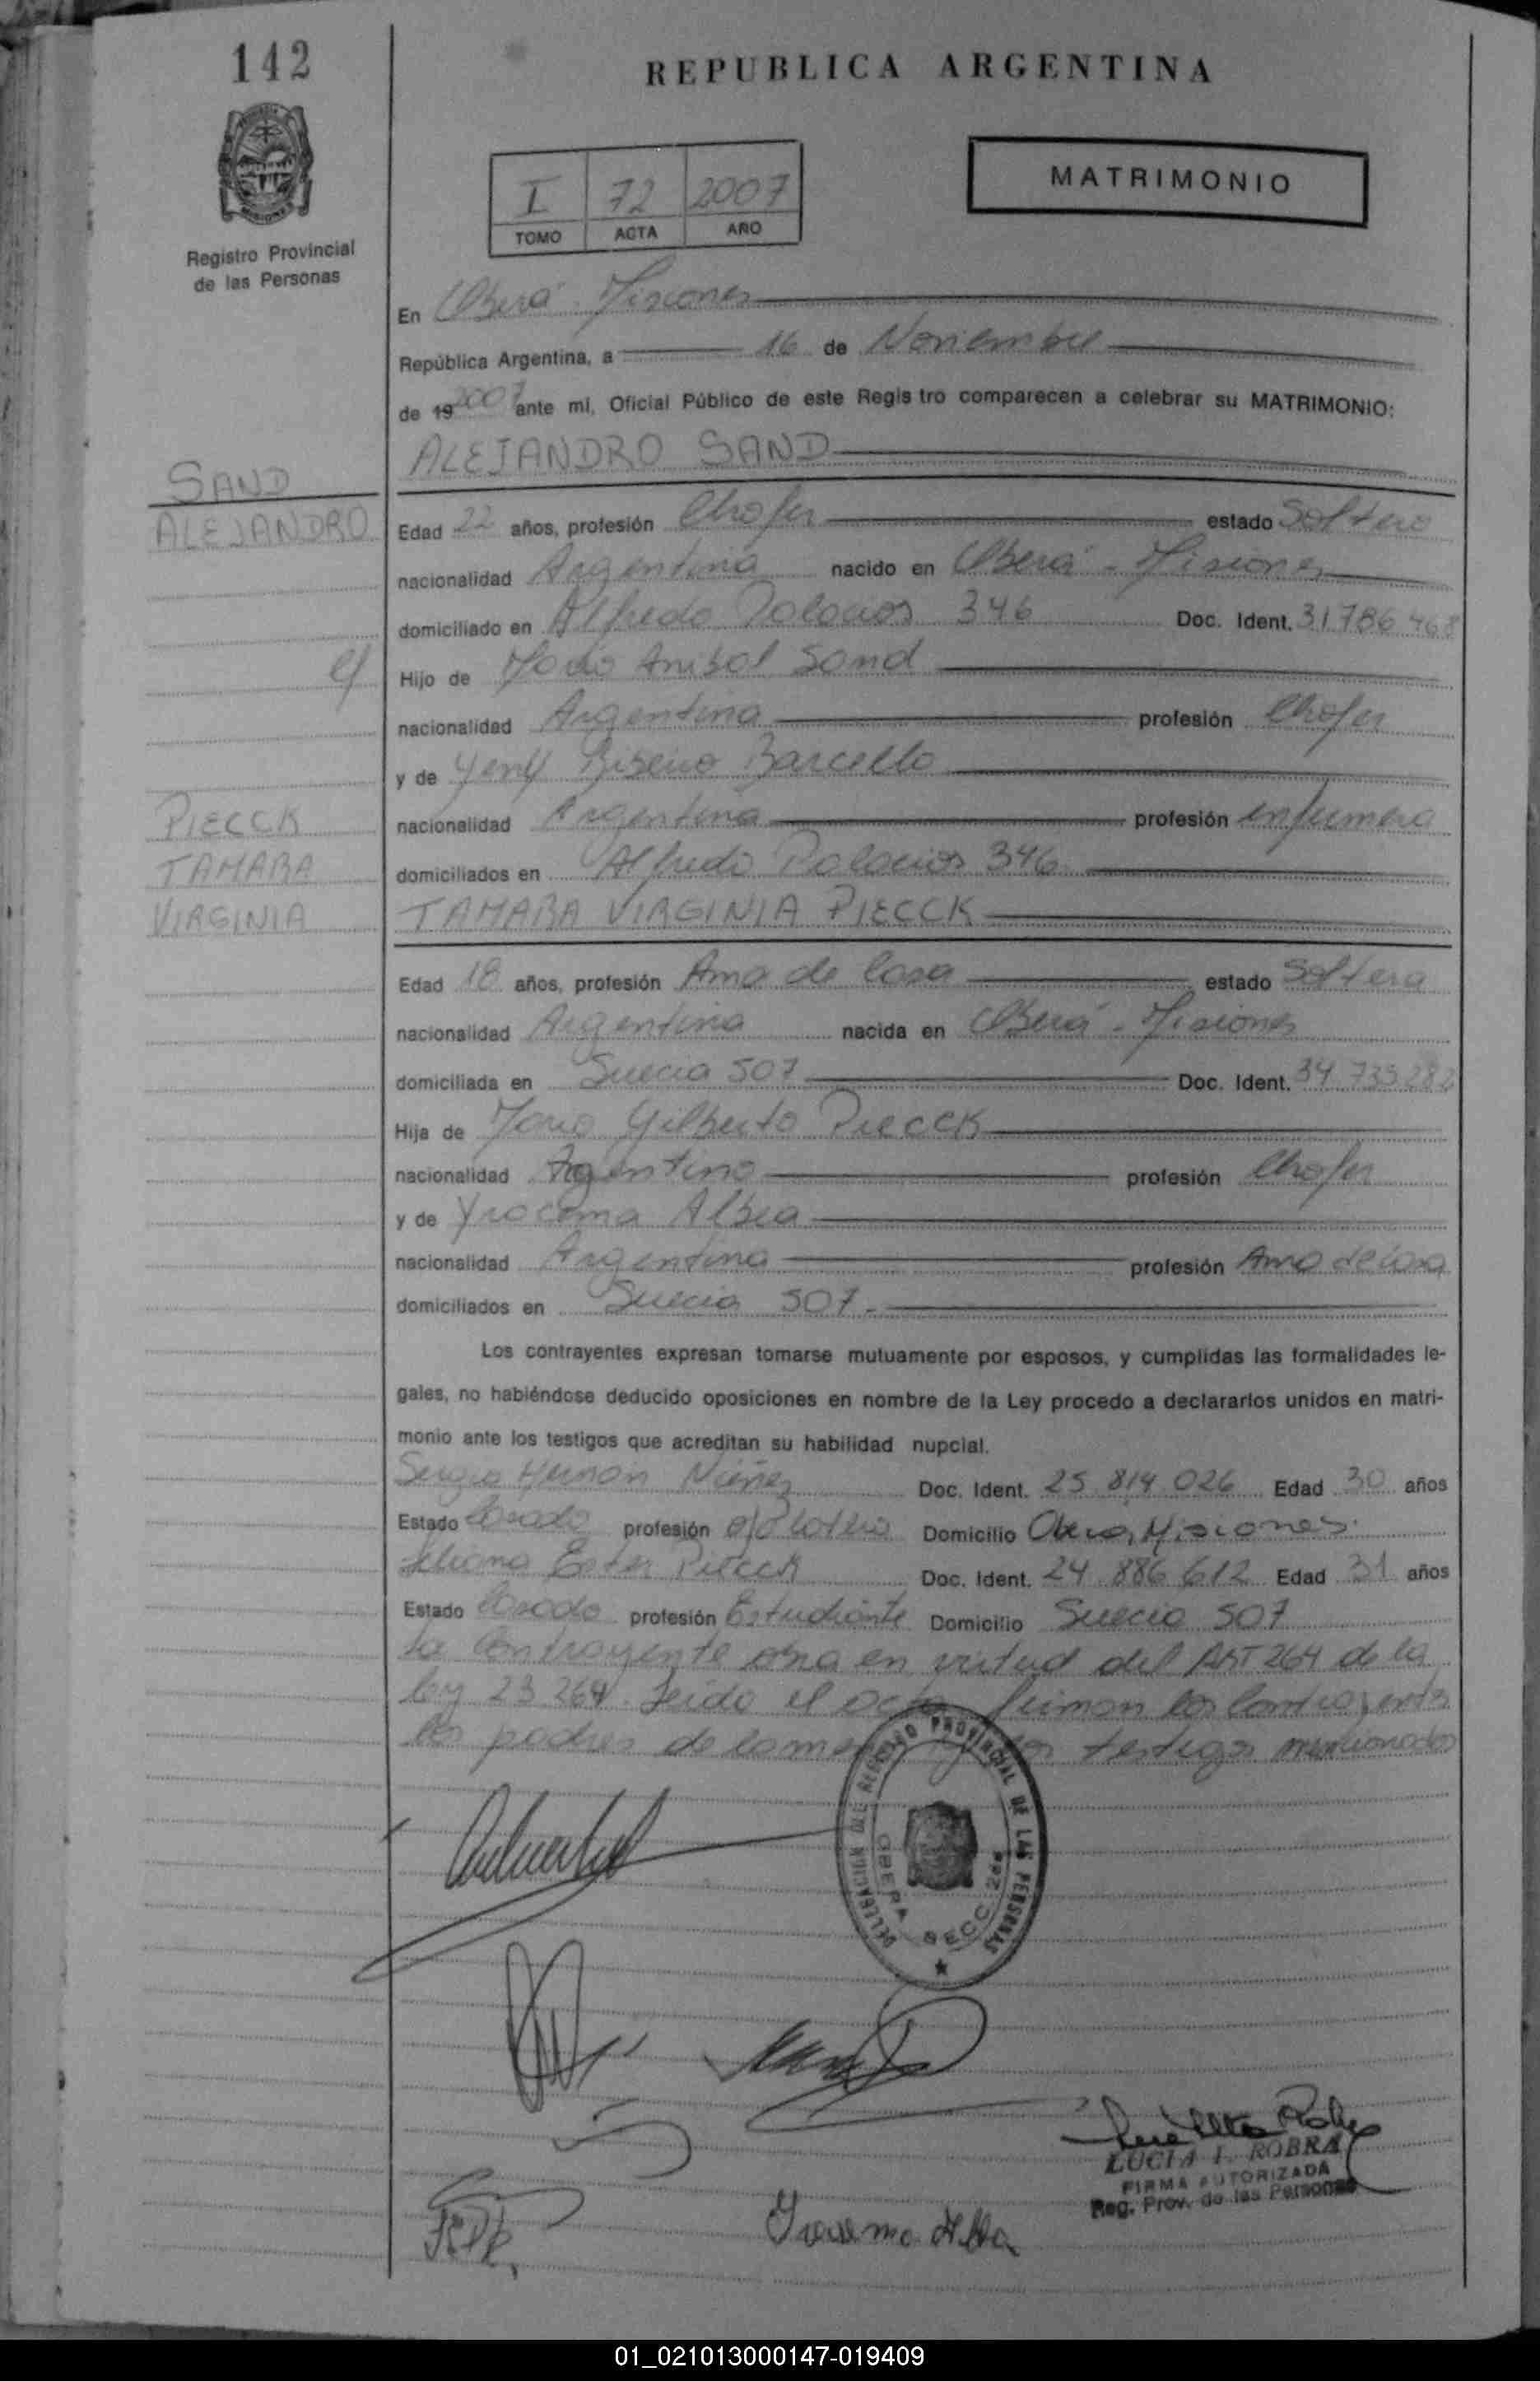 142
REPUBLICA ARGENTINA
I 72 2007
TOMO ACTA AÑO
MATRIMONIO
Registro Provincial
de las Personas
En Oberá - Misiones
República Argentina, a 16 de Noviembre
de 19 2007 ante mi, Oficial Público de este Registro comparecen a celebrar su MATRIMONIO:
ALEJANDRO SAND
SAND
ALEJANDRO
Edad 22 años, profesión Chofer estado Soltero
nacionalidad Argentina nacido en Oberá - Misiones
domiciliado en Alfredo Palacios 346 Doc. Ident. 31 786 468
Hijo de Mario Anibal Sand
nacionalidad Argentina profesión Chofer
y de Barcello
nacionalidad Argentina profesión enfermera
domiciliados en Alfredo Palacios 346
PIECCK
TAMARA
VIRGINIA
TAMARA VIRGINIA PIECCK
Edad 18 años, profesión Ama de Casa estado Soltera
nacionalidad Argentina nacida en Oberá - Misiones
domiciliada en Suecia 507 Doc. Ident. 34 735 282
Hija de Mario Gilberto Piecck
nacionalidad Argentina profesión Chofer
y de Yracema Albea
nacionalidad Argentina profesión Ama de Casa
domiciliados en Suecia 507.-
Los contrayentes expresan tomarse mutuamente por esposos, y cumplidas las formalidades le-
gales, no habiéndose deducido oposiciones en nombre de la Ley procedo a declararlos unidos en matri-
monio ante los testigos que acreditan su habilidad nupcial.
Sergio Hernan Nuñez Doc. Ident. 25 814 026 Edad 30 años
Estado Casado profesión Domicilio Oberá, Misiones.
Ester Piecck Doc. Ident. 24 886 612 Edad 31 años
Estado Casada profesión Estudiante Domicilio Suecia 507
La Contrayente en virtud del ART 264 de la
ley 23 264. Leido el acta firman los Contrayentes
los padres de testigos mencionados
DELEGACION DEL REGISTRO PROVINCIAL DE LAS PERSONAS
OBERA SECC. 2da
LUCIA I. ROBRA
FIRMA AUTORIZADA
Reg. Prov. de las Personas
Yracema Albea
01_021013000147-019409